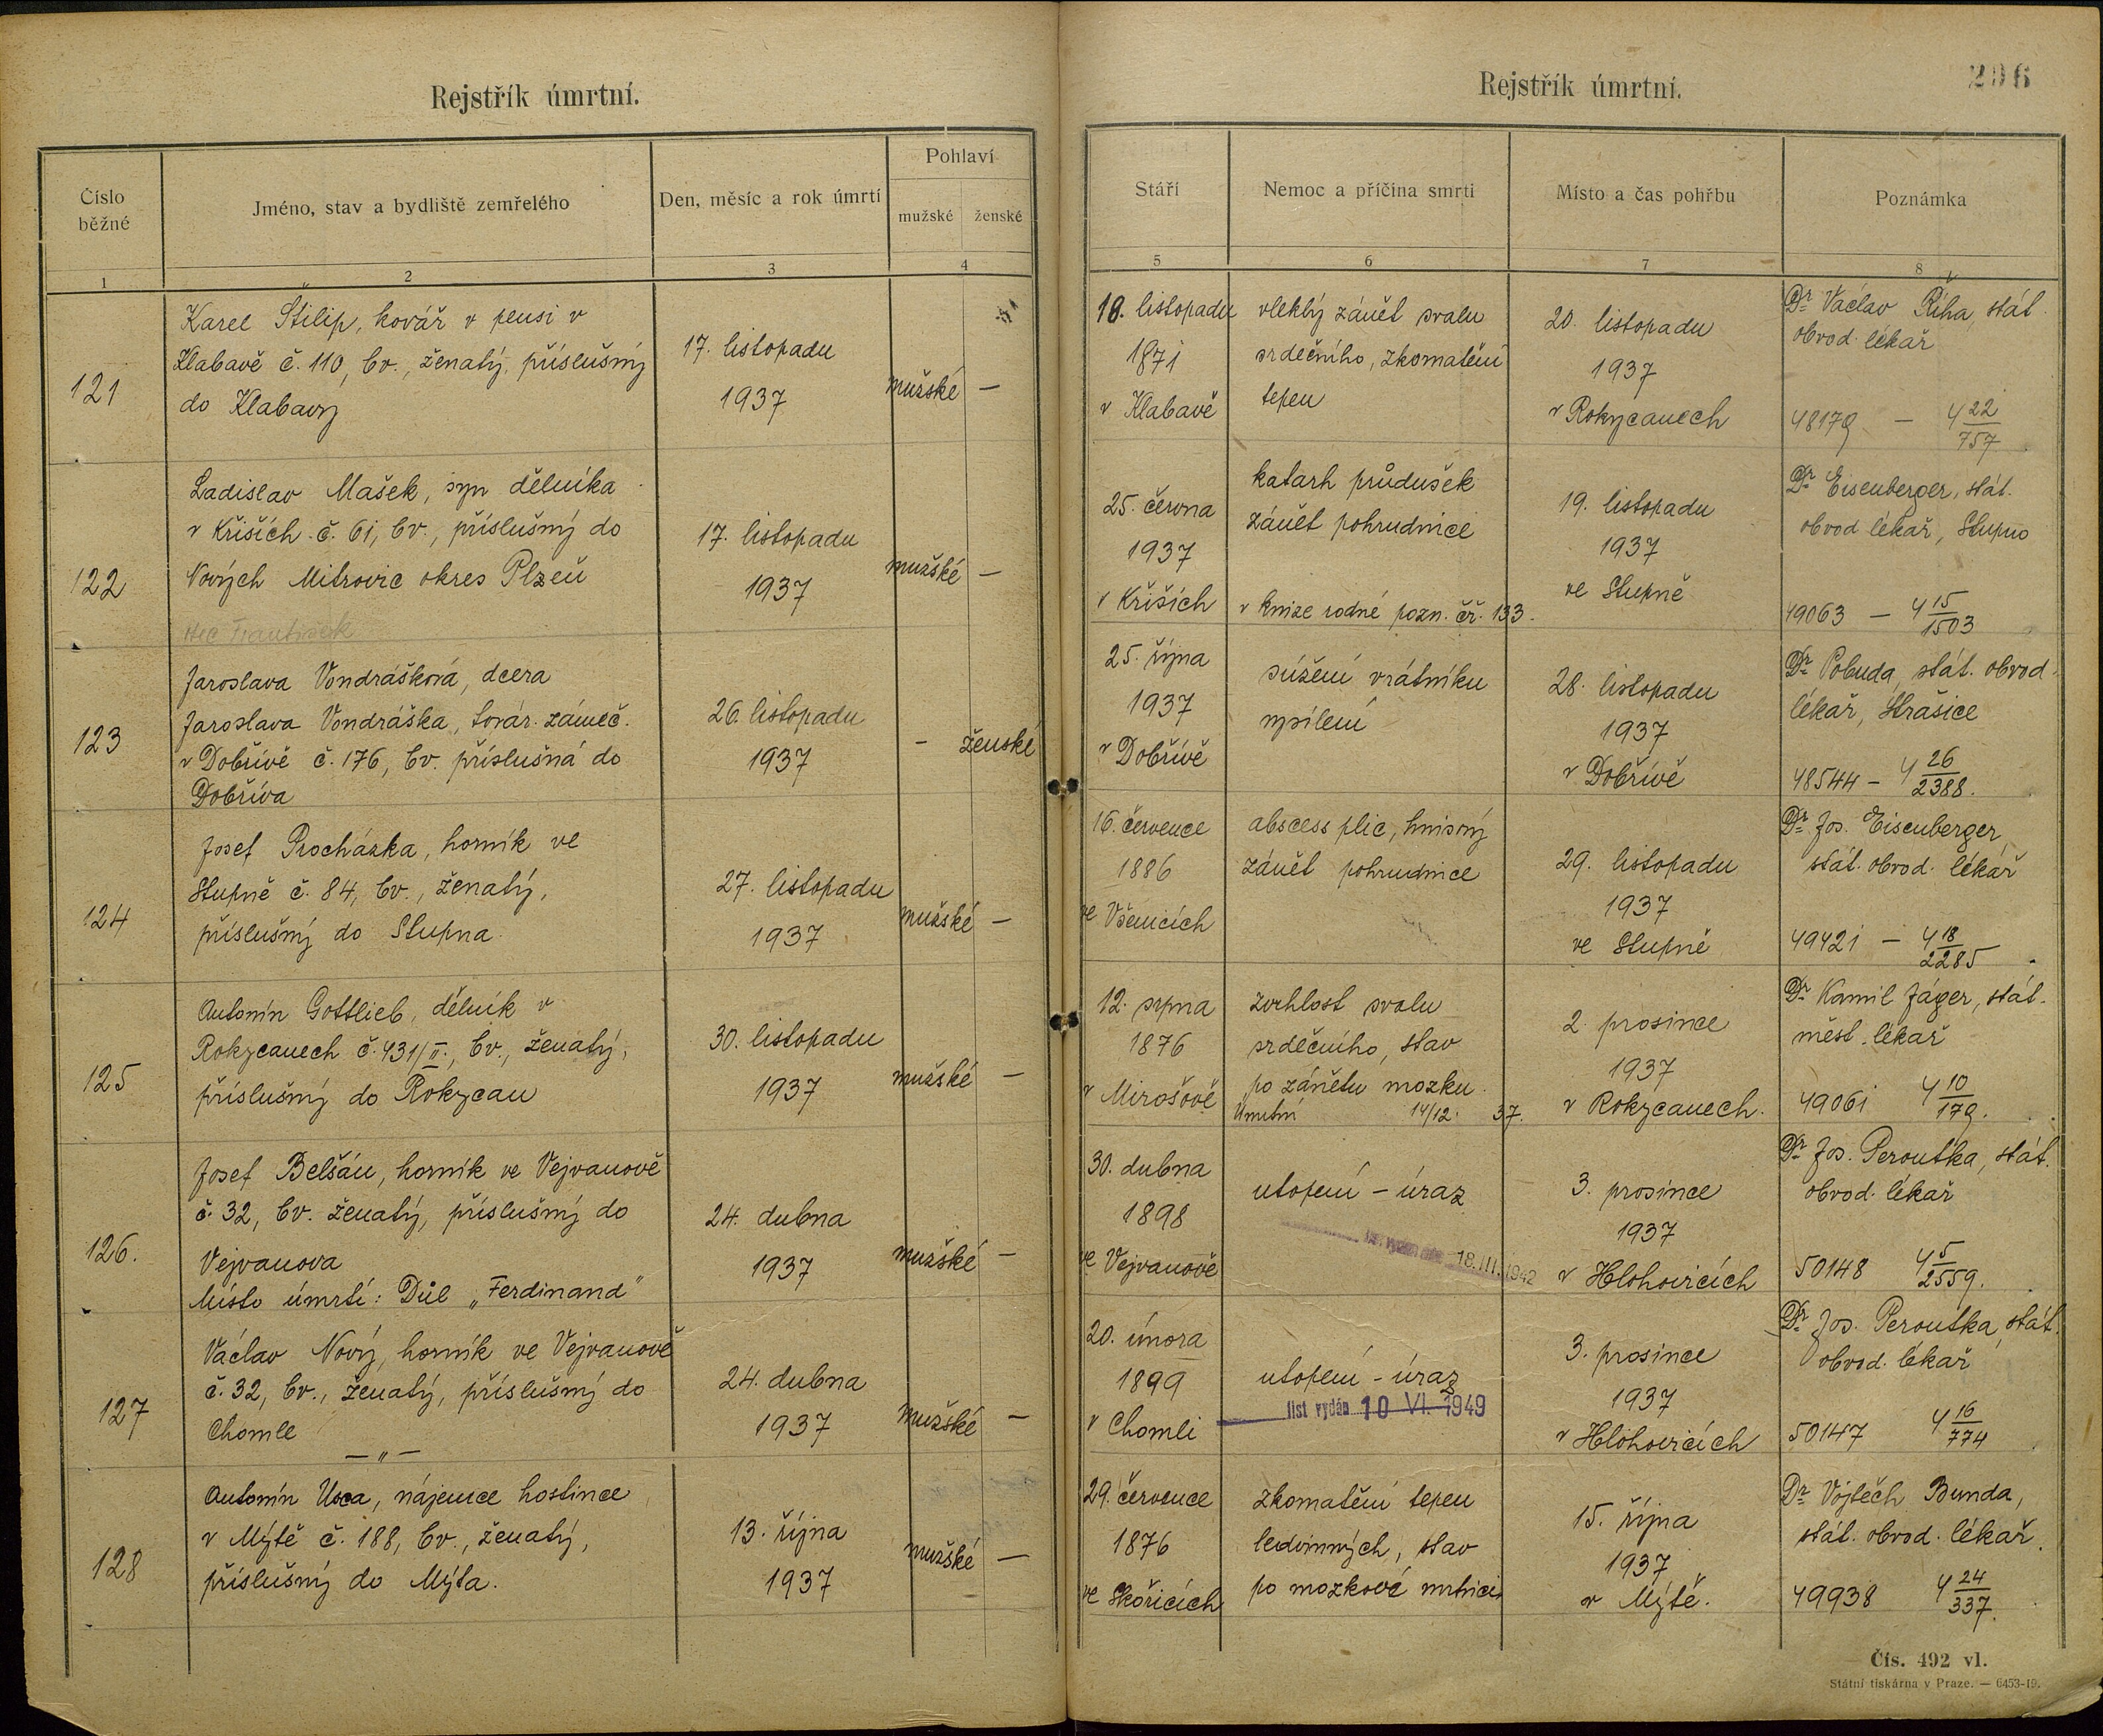 Rejstřík úmrtní.
Číslo běžné
Jméno, stav a bydliště zemřelého
Den, měsíc a rok úmrtí
Pohlaví
mužské
ženské
1
2
3
4
121
Karel Štilip, kovář v pensi v
Klabavě č. 110, bv., ženatý, příslušný
do Klabavy
17. listopadu
1937
mužské —
122
Ladislav Mašek, syn dělníka
v Křiších č. 61, bv., příslušný do
Nových Mitrovic okres Plzeň
otec František
17. listopadu
1937
mužské —
123
Jaroslava Vondrášková, dcera
Jaroslava Vondráška, továr. zámeč.
v Dobřívě č. 176, bv. příslušná do
Dobříva
26. listopadu
1937
— ženské
124
Josef Procházka, horník ve
Stupně č. 84, bv., ženatý,
příslušný do Stupna
27. listopadu
1937
mužské —
125
Antonín Gottlieb, dělník v
Rokycanech č. 431/II., bv., ženatý,
příslušný do Rokycan
30. listopadu
1937
mužské —
126.
Josef Belšán, horník ve Vejvanově
č. 32, bv. ženatý, příslušný do
Vejvanova
Místo úmrtí: Důl „Ferdinand"
24. dubna
1937
mužské —
127
Václav Nový, horník ve Vejvanově
č. 32, bv., ženatý, příslušný do
Chomle
— „ —
24. dubna
1937
mužské —
128
Antonín Usca, nájemce hostince
v Mýtě č. 188, bv., ženatý,
příslušný do Mýta.
13. října
1937
mužské —
Rejstřík úmrtní.
296
Stáří
Nemoc a příčina smrti
Místo a čas pohřbu
Poznámka
5
6
7
8
10. listopadu
1871
v Klabavě
vleklý zánět svalu
srdečního, zkornatění
tepen
20. listopadu
1937
v Rokycanech
Dr Václav Říha, stát.
obvod. lékař
48179 — 4 22/757
25. června
1937
v Křiších
katarh průdušek
zánět pohrudnice
v knize rodné pozn. čř. 133.
19. listopadu
1937
ve Stupně
Dr Eisenberger, stát.
obvod lékař, Stupno
49063 — 4 15/1503
25. října
1937
v Dobřívě
súžení vrátníku
vysílení
28. listopadu
1937
v Dobřívě
Dr Pobuda, stát. obvod.
lékař, Strašice
48544 — 4 26/2388.
16. července
1886
ve Všenicích
abscess plic, hnisavý
zánět pohrudnice
29. listopadu
1937
ve Stupně
Dr Jos. Eisenberger,
stát. obvod. lékař
49421 — 4 18/2285
12. srpna
1876
v Mirošově
zvrhlost svalu
srdečního, stav
po zánětu mozku
Úmrtní 14/12. 37.
2. prosince
1937
v Rokycanech.
Dr Kamil Jäger, stát.
měst. lékař
49061 4 10/179.
30. dubna
1898
ve Vejvanově
utopení – úraz
18. III. 1942
3. prosince
1937
v Hlohovicích
Dr Jos. Peroutka, stát.
obvod. lékař
50148 4 5/2559.
20. února
1899
v Chomli
utopení – úraz
list vydán 10 VI. 1949
3. prosince
1937
v Hlohovicích
Dr Jos. Peroutka, stát.
obvod. lékař
50147 4 16/774
29. července
1876
ve Skořicích
zkornatění tepen
ledvinných, stav
po mozkové mrtvici
15. října
1937
v Mýtě.
Dr Vojtěch Bunda,
stát. obvod. lékař.
49938 4 24/337.
Čís. 492 vl.
Státní tiskárna v Praze. — 6453-19.